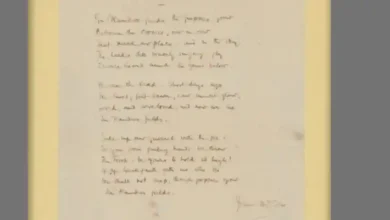 In Flanders fields the poppies grow
Between the crosses, row on row
That mark our place: and in the sky
The larks still bravely singing, fly
Scarce heard amid the guns below.
We are the Dead. Short days ago
We lived, felt dawn, saw sunset glow,
Loved, and were loved, and now we lie
In Flanders fields.
Take up our quarrel with the foe:
To you from failing hands we throw
The torch: be yours to hold it high!
If ye break faith with us who die
We shall not sleep, though poppies grow
In Flanders fields.